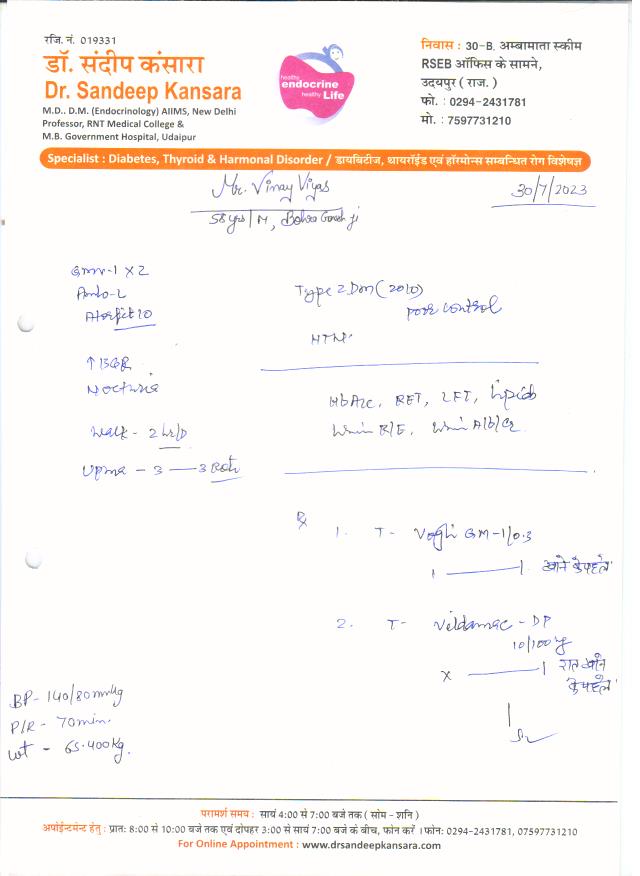 रजि. नं. 019331
डॉ. संदीप कंसारा
Dr. Sandeep Kansara
M.D.. D.M. (Endocrinology) AIIMS, New Delhi
Professor, RNT Medical College &
M.B. Government Hospital, Udaipur
healthy
endocrine
healthy Life
निवास : 30-B. अम्बामाता स्कीम
RSEB ऑफिस के सामने,
उदयपुर ( राज. )
फो. : 0294-2431781
मो. : 7597731210
Specialist : Diabetes, Thyroid & Harmonal Disorder / डायबिटीज, थायरॉईड एवं हॉरमोन्स सम्बन्धित रोग विशेषज्ञ
Mr. Vinay Vyas
30/7/2023
58 yrs/M, Bohra Ganesh ji
GMV-1 X 2
Type 2 Dm (2010)
poor control
HTN
Nocturia
HbA1c, RFT, LFT, lipids
Urin R/E, Urin Alb/Cr
Walk - 2 hr/D
Upma - 3 — 3 Roti
Rx
1. T- Vogli GM-1/0.3
1 — 1 खाने के पहले
2. T- Vildamac - DP
10/100 mg
X — 1 रात खाने
के पहले
BP- 140/80 mmHg
P/R - 70 min.
wt - 65.400 Kg.
परामर्श समय : सायं 4:00 से 7:00 बजे तक ( सोम - शनि )
अपॉईन्टमेन्ट हेतु : प्रात: 8:00 से 10:00 बजे तक एवं दोपहर 3:00 से सायं 7:00 बजे के बीच, फोन करें । फोन: 0294-2431781, 07597731210
For Online Appointment : www.drsandeepkansara.com